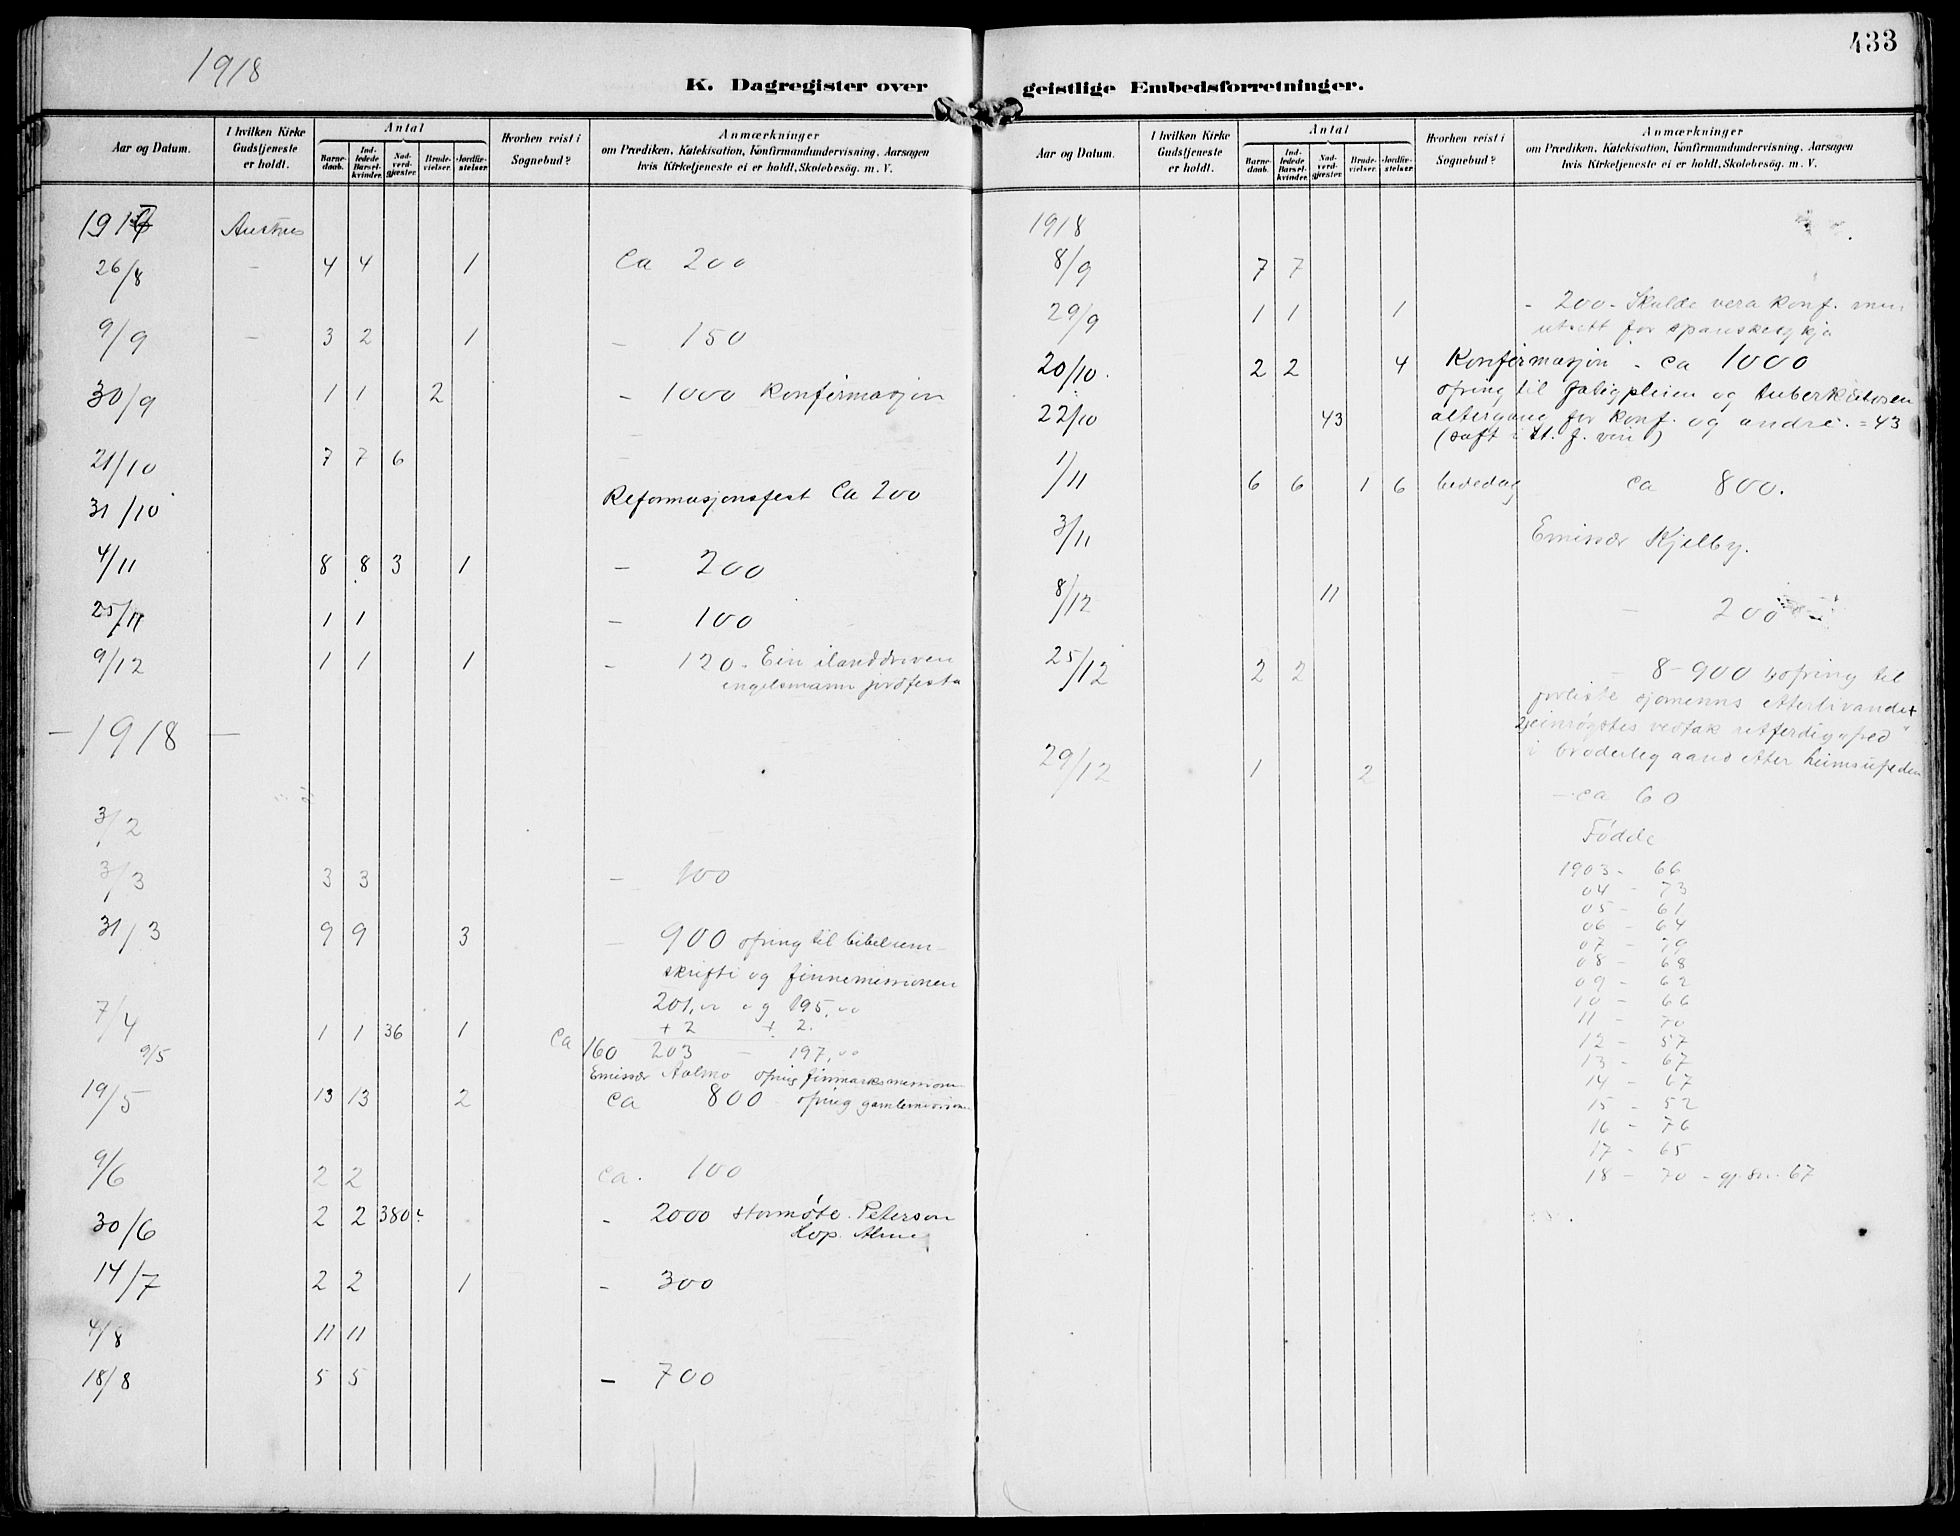 1918
433
K. Dagregister over geistlige Embedsforretninger.
Aar og Datum. I hvilken Kirke Gudstjeneste er holdt. Antal Barnedaab. Indledede Barselkvinder. Nadverdgjæster. Brudevielser. Jordfæstelser. Hvorhen reist i Sognebud? Anmærkninger om Prædiken, Katekisation, Konfirmandundervisning, Aarsagen hvis Kirketjeneste ei er holdt, Skolebesøg. m. V.
1917
26/8 - 4 4 1 Ca 200
9/9 - 3 2 1 - 150
30/9 1 1 2 - 1000 Konfirmasjon
21/10 7 7 6 -
31/10 Reformasjonsfest Ca 200
4/11 8 8 3 1 - 200
25/11 1 1 - 100
9/12 1 1 1 - 120. Ein ilanddriven
engelsmann jordfesta
- 1918 -
3/2
3/3 3 3 - 100
31/3 9 9 3 - 900 ofring til
skrifti og finnemissionen
201,00 og 195,00
+ 2 + 2.
7/4 1 1 36 1 Ca 160 203 - 197,00
9/5 Emissær Aalmo ofring finmarksmission
19/5 13 13 2 ca 800 ofring
9/6 2 2 ca. 100
30/6 2 2 380? - 2000 stormøte. Peterson
14/7 2 2 1 - 300
4/8 11 11
18/8 5 5 - 700
Aar og Datum. I hvilken Kirke Gudstjeneste er holdt. Antal Barnedaab. Indledede Barselkvinder. Nadverdgjæster. Brudevielser. Jordfæstelser. Hvorhen reist i Sognebud? Anmærkninger om Prædiken, Katekisation, Konfirmandundervisning, Aarsagen hvis Kirketjeneste ei er holdt, Skolebesøg. m. V.
1918
8/9 7 7
29/9 1 1 1 - 200. Skulde vera konf. men
utsett for spanskesykja
20/10. 2 2 4 Konfirmasjon - ca 1000
ofring til og tuberkulosen
22/10 43 altergang for konf. og andre. = 43
(saft i st. f. vin)
1/11 6 6 1 6 bededag ca 800.
3/11 Emissær Kjelby.
8/12 11 - 200
25/12 2 2 - 8-900 ofring til
forliste sjømenns etterlivande +
vedtak
i broderleg aand etter
29/12 1 2
- ca 60
Fødde
1903 - 66
04 - 73
05 - 61
06 - 64
07 - 79
08 - 68
09 - 62
10 - 66
11 - 70
12 - 57
13 - 67
14 - 67
15 - 52
16 - 76
17 - 65
18 - 70 - gj.sn. 67